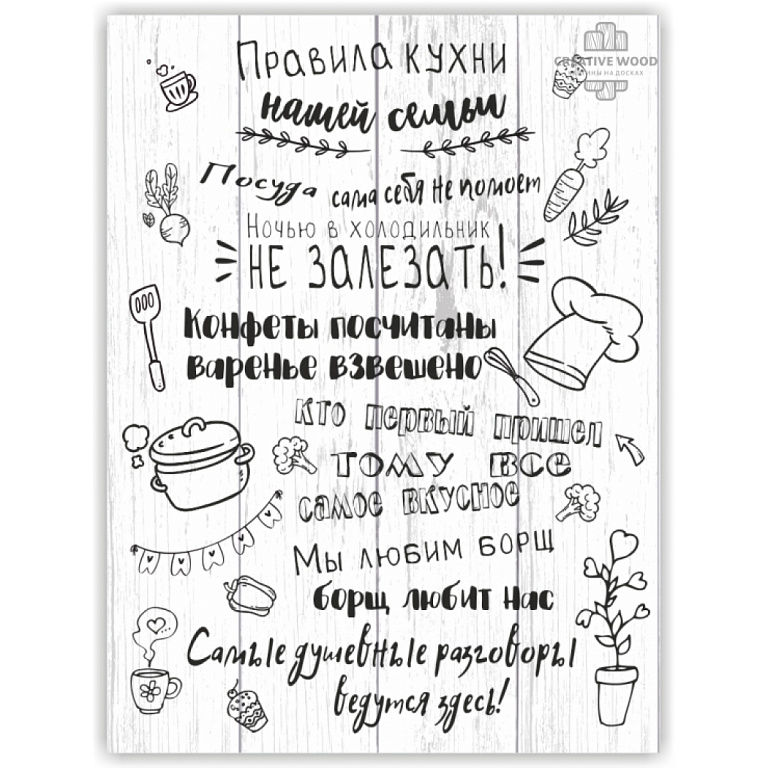 Правила кухни
нашей семьи
CREATIVE WOOD
КАРТИНЫ НА ДОСКАХ
Посуда сама себя не помоет
Ночью в холодильник
НЕ ЗАЛЕЗАТЬ!
Конфеты посчитаны
варенье взвешено
Кто первый пришел
тому все
самое вкусное
Мы любим борщ
борщ любит нас
Самые душевные разговоры
ведутся здесь!